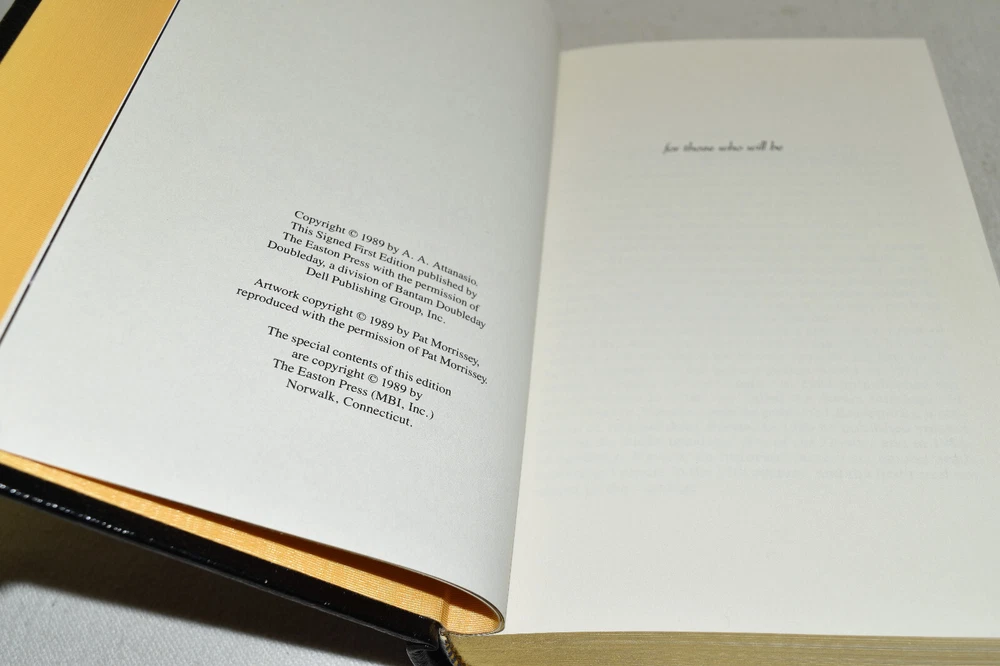 Copyright © 1989 by A. A. Attanasio.
This Signed First Edition published by
The Easton Press with the permission of
Doubleday, a division of Bantam Doubleday
Dell Publishing Group, Inc.
Artwork copyright © 1989 by Pat Morrissey,
reproduced with the permission of Pat Morrissey.
The special contents of this edition
are copyright © 1989 by
The Easton Press (MBI, Inc.)
Norwalk, Connecticut.
for those who will be